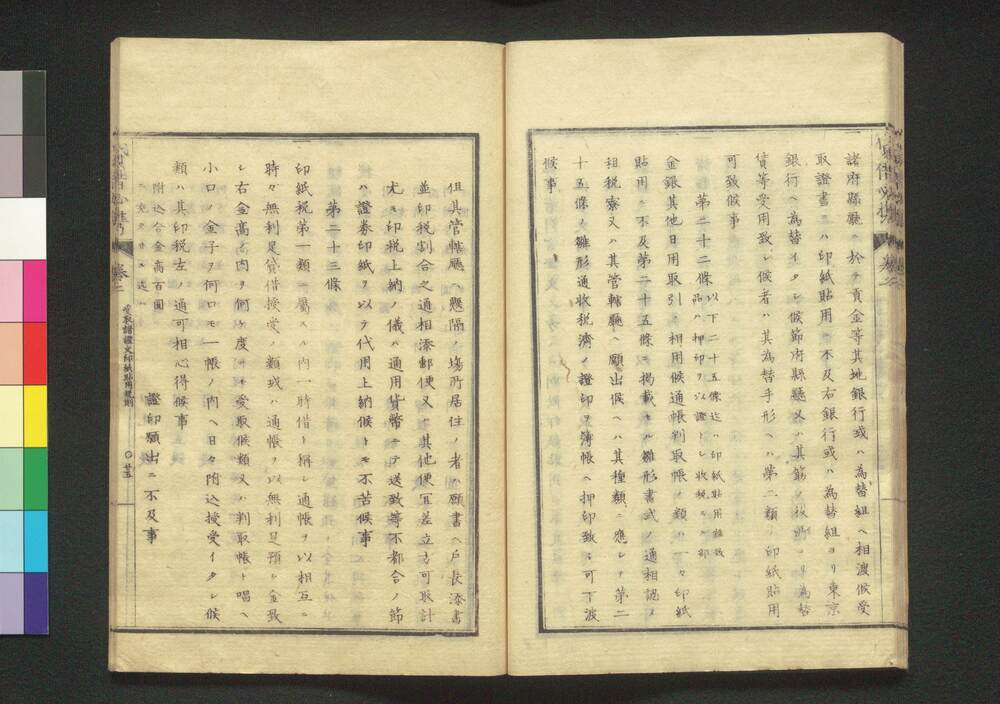 諸府縣廳ニ於テ貢金等其地銀行或ハ為替組ヘ相渡候受
取證書ニハ印紙貼用ニ不及右銀行或ハ為替組ヨリ東京
銀行ヘ為替イタシ候節府縣廳又ハ其筋ノ役所ヨリ為替
賃等受用致シ候者ハ其為替手形ヘハ第二類ノ印紙貼用
可致候事
第二十二條 以下二十五條迄ハ印紙貼用租税
品ハ押印ヲ以證トシ收税スルノ部
金銀其他日用取引ニ相用候通帳判取帳ノ類ハ一々印紙
貼用ニ不及第二十五條ニ掲載スル雛形書式ノ通相認メ
租税寮又ハ其管轄廳ヘ願出候ヘハ其種類ニ應シテ第二
十五條ノ雛形通收税濟ノ證印ヲ簿帳ヘ押印致シ可下渡
候事
但其管轄廳ヘ懸隔ノ場所居住ノ者ハ願書ヘ戸長添書
並印税割合之通相添郵便又ハ其他便宜差立方可取計
尤モ印税上納ノ儀ハ通用貨幣ニテ送致等不都合ノ節
ハ證券印紙ヲ以テ代用上納候トモ不苦候事
第二十三條
印紙税第一類ニ屬スル内一時借ト稱シ通帳ヲ以相互ニ
時々無利足貸借授受ノ類或ハ通帳ヲ以無利足預ケ金致
シ右金高ノ内ヲ何ケ度ニモ受取候類又ハ判取帳ト唱ヘ
小口ノ金子ヲ何口モ一帳ノ内ヘ日々附込授受イタシ候
類ハ其印税左ノ通可相心得候事
附込合金高百圓
ニ充タサル迄ハ
證印願出ニ不及事
受取諸證文印紙貼用規則
〇廿五
卷二